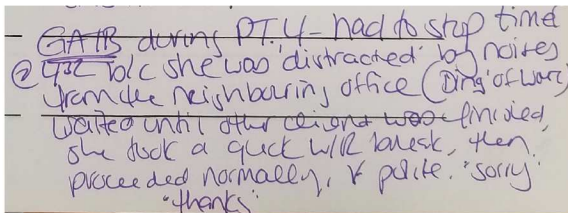 GATB during PT.4 - had to stop time
@ 432 b/c she was 'distracted' by noises
from the neighbouring office (
waited until other client was finished,
she took a quick W/R break, then
proceeded normally, v polite. "sorry"
"thanks"